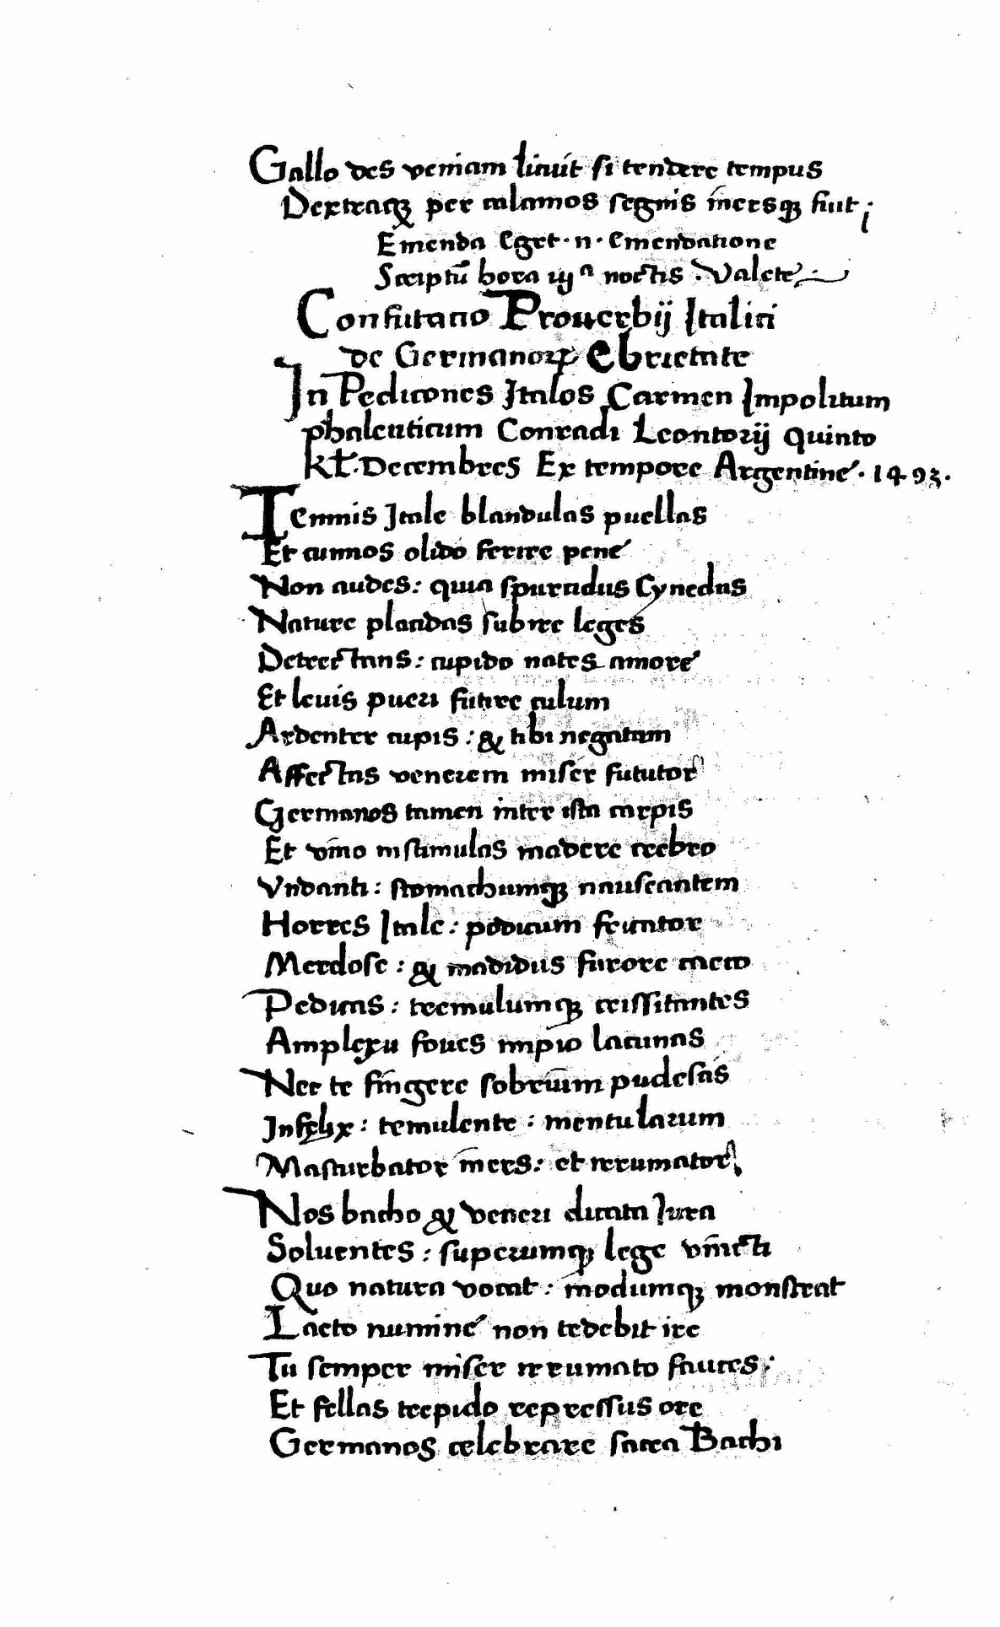 Gallo des veniam licuit si tendere tempus
Dextraqꝫ per calamos segnis inersqꝫ fuit
Emenda Eget .n. Emendatione
Scriptū hora iijᵃ noctis . Valete
Confutatio Prouerbij Italici
de Germanoꝝ Ebrietate
In Pedicones Italos Carmen Impolitum
phaleuticum Conradi Leontorij Quinto
Kł. Decembres Ex tempore Argentine . 1493.
Tennis Itale blandulas puellas
Et cunnos olido ferire pene
Non audes : quia spurcidus Cynedas
Nature placidas subire leges
Detrectans : cupido nates amore
Et leuis pueri futire culum
Ardenter cupis : & tibi negatam
Affectas venerem miser fututor
Germanos tamen inter ista carpis
Et vino insimulas madere crebro
Vndanti : stomachumqꝫ nauseantem
Horres Itale : podicum feritator
Merdose : & madidus furore caeco
Pedicas : tremulumqꝫ crissitantes
Amplexu foues impio lacunas
Nec te fingere sobrium pudescas
Infelix : temulente : mentularum
Masturbator iners : et irrumator
Nos bacho & veneri dicata Iura
Soluentes : superumqꝫ lege vincti
Quo natura vocat : modumqꝫ monstrat
Laeto numine non tedebit ire
Tu semper miser irrumato fauces
Et fellas trepido repressus ore
Germanos celebrare sacra Bachi